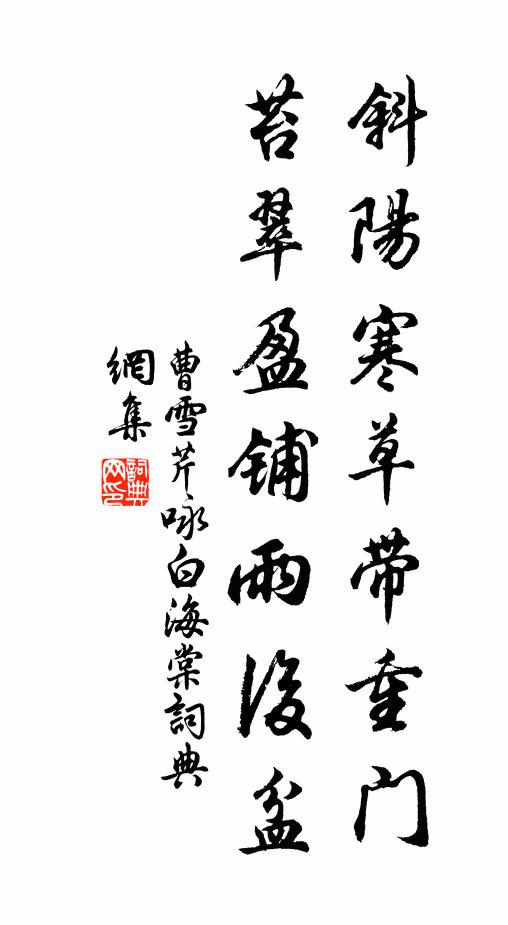 斜陽寒草帶重门
苔翠盈鋪雨後盆
曹雪芹咏白海棠詞典
網集
詞典网印